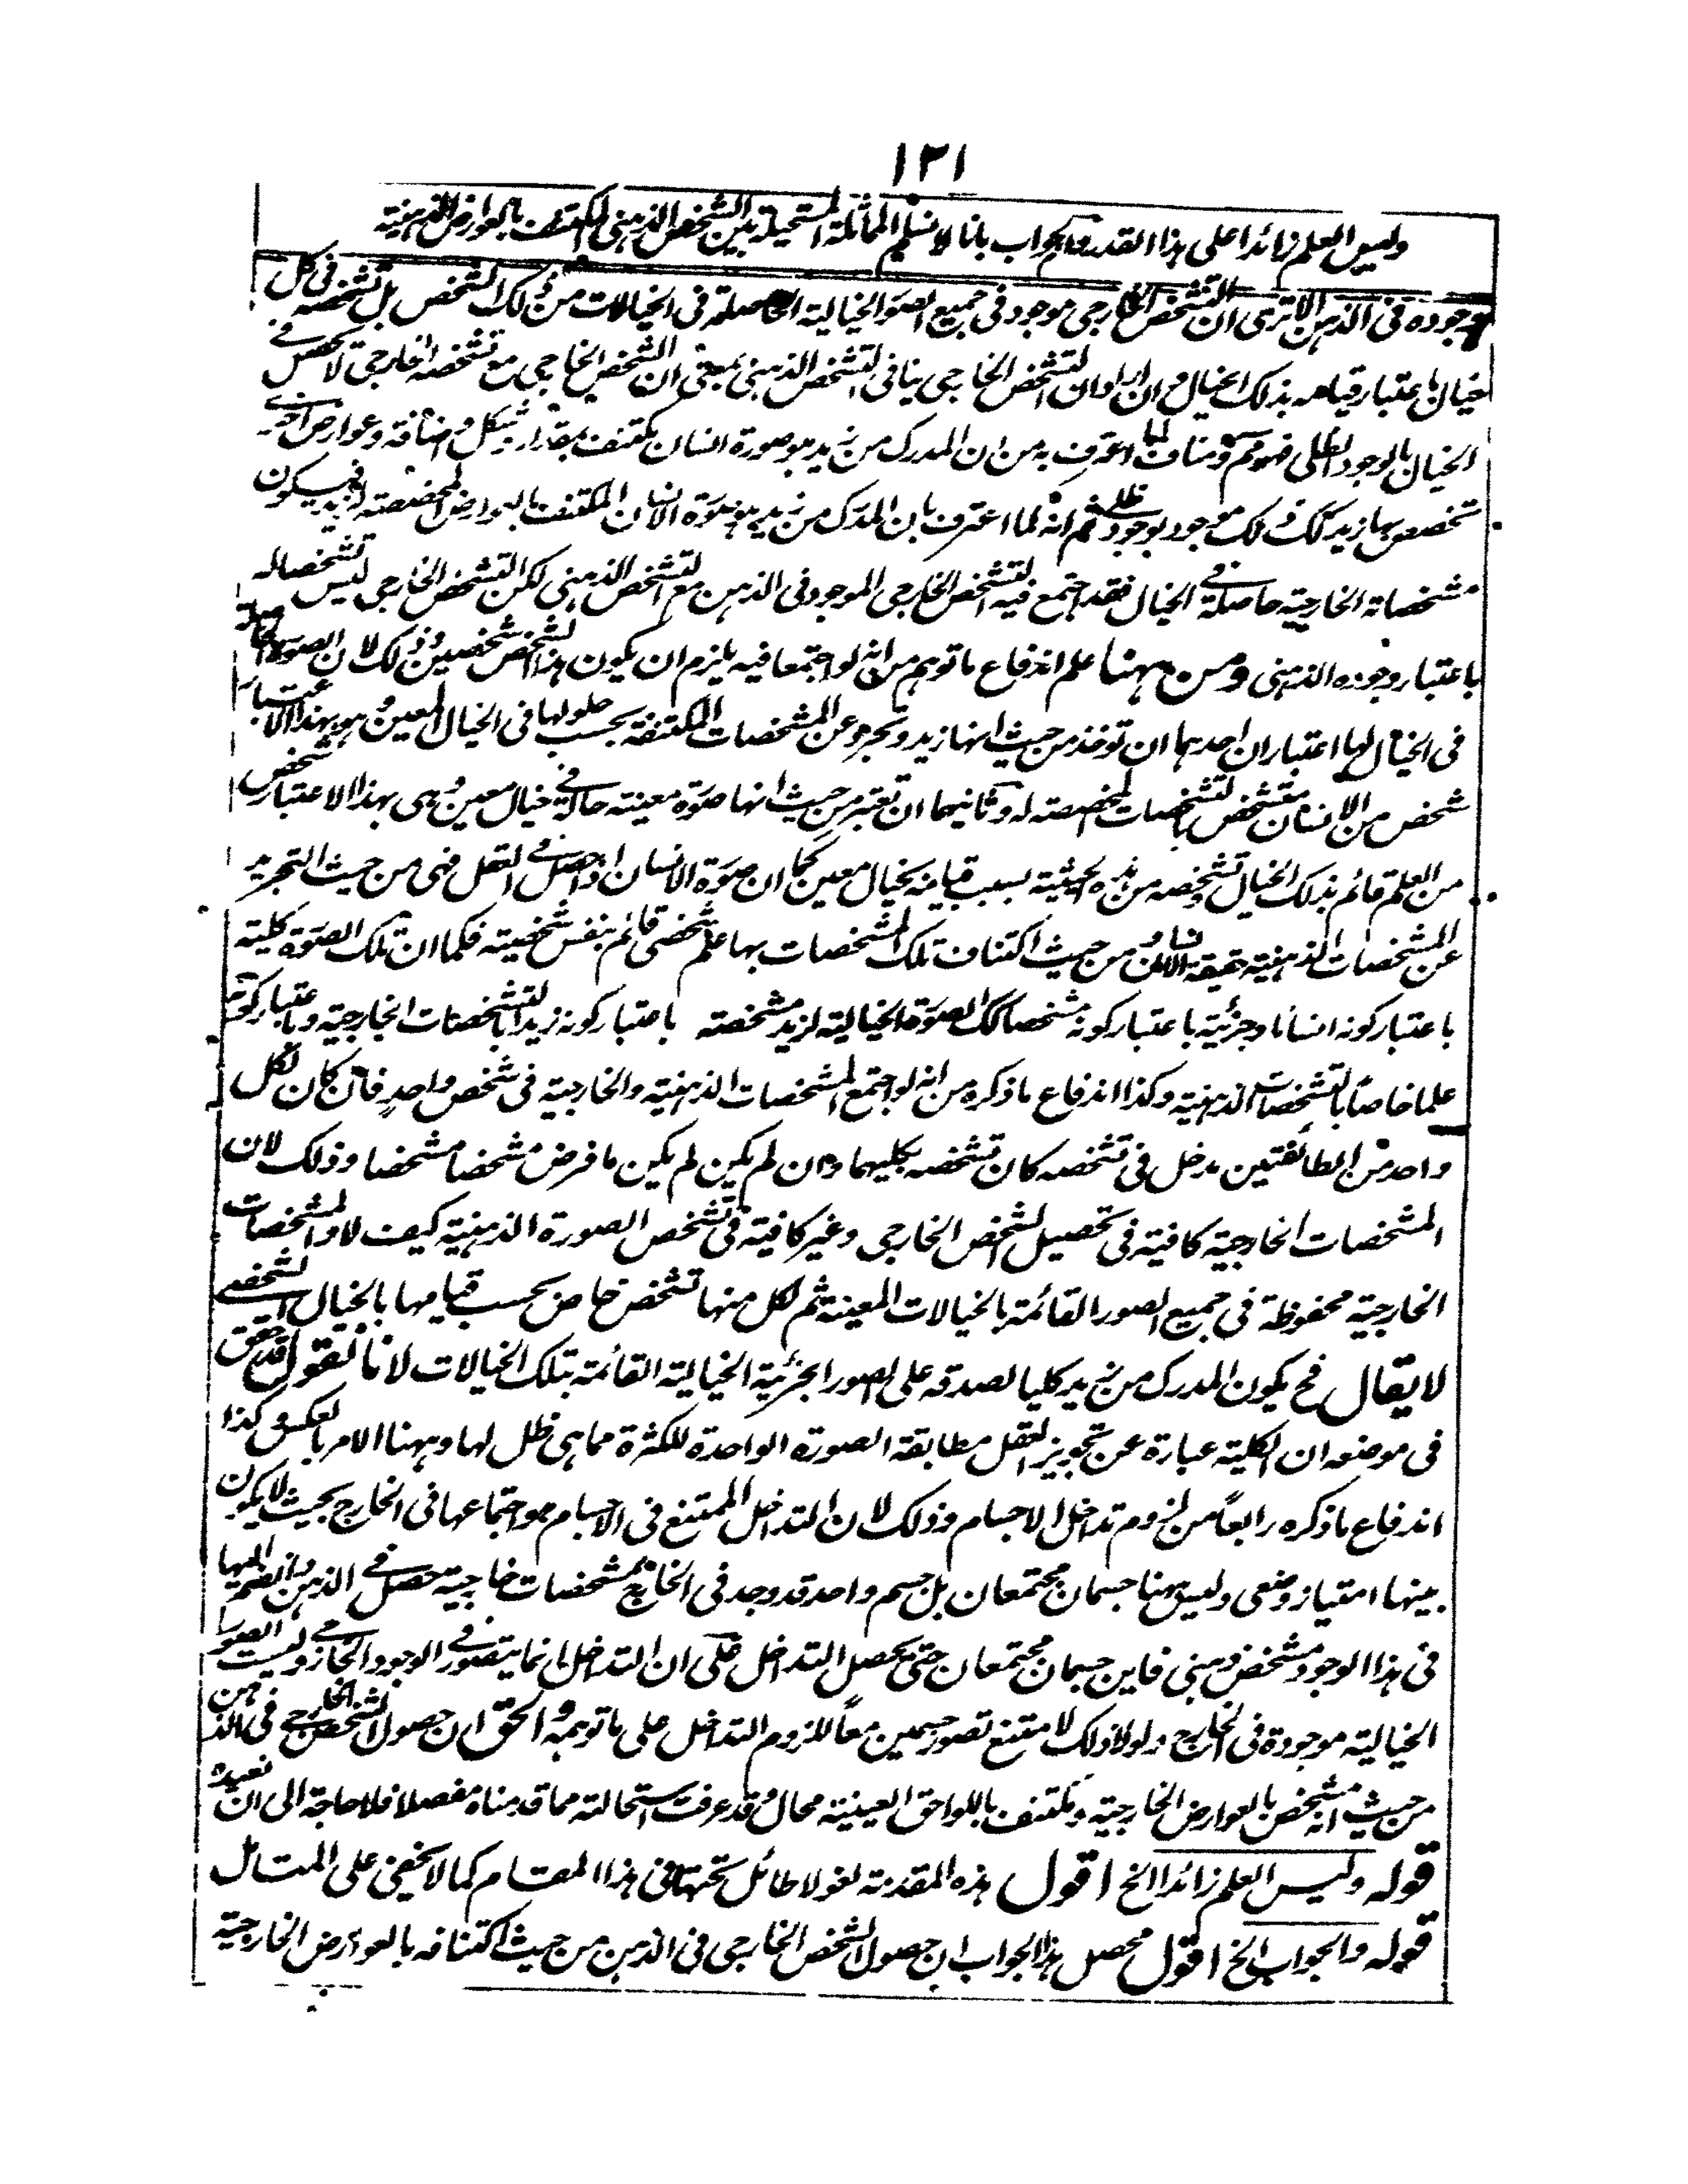 ١٢١
وليس العلم زائدا على هذا القدر والجواب بانا لا نسلم المماثلة المستحيلة بين الشخص الذهنى المكتنف بالعوارض الذهنية
وجوده فى الذهن الا ترى ان التشخص الخارجى موجود فى جميع الصور الخيالية الحاصلة فى الخيالات من ذلك الشخص بل تشخصه فى كل
خيال باعتبار قيامه بذلك الخيال وان اراد ان التشخص الخارجى ينافى التشخص الذهنى بمعنى ان الشخص الخارجى مع تشخصه الخارجى لا يحصل فى
الخيال بالوجود الظلى فهو مم ومناف لما اعترف به من ان المدرك من زيد هو صورة انسان مكتنف بمقدار وشكل واضافة وعوارض اخر
تخصص بها زيد كك ذلك موجود بوجود ظلى ثم انه لما اعترف بان المدرك من زيد هو صورة الانسان المكتنف بالعوارض المخصصة لزيد يكون
مشخصاته الخارجية حاصلة فى الخيال فقد اجتمع فيه التشخص الخارجى الموجود فى الذهن مع التشخص الذهنى لكن التشخص الخارجى ليس تشخصا له
باعتبار وجوده الذهنى ومن ههنا علم اندفاع ما توهم من انه لو اجتمعا فيه يلزم ان يكون هذا الشخص شخصين وذلك لان الصورة الحاصلة
فى الخيال لها اعتباران احدهما ان توخذ من حيث انها زيد وتجرد عن المشخصات المكتنفة بحسب حلولها فى الخيال المعين وهو بهذا الاعتبار
شخص من الانسان متشخص بالتشخصات المخصصة له وثانيهما ان تعتبر من حيث انها صورة معينة حالة فى خيال معين وهى بهذا الاعتبار شخص
من العلم قائم بذلك الخيال وتشخصه من هذه الحيثية بسبب قيامه بخيال معين كما ان صورة الانسان اذا حصل فى العقل فهى من حيث التجريد
عن المشخصات الذهنية حقيقة الانسان ومن حيث اكتناف تلك المشخصات بها علم شخصى قائم بنفس شخصية فكما ان تلك الصورة كلية
باعتبار كونه انسانا وجزئية باعتبار كونه مشخصا كك الصورة الخيالية لزيد مشخصته باعتبار كونه زيدا بالتشخصات الخارجية وباعتبار كونه
علما خاصا بالتشخصات الذهنية وكذا اندفاع ما ذكره من انه لو اجتمع المشخصات الذهنية والخارجية فى شخص واحد فان كان لكل
واحد من الطائفتين مدخل فى تشخصه كان تشخصه بكليهما وان لم يكن لم يكن ما فرض مشخصا مشخصا وذلك لان
المشخصات الخارجية كافية فى تحصيل الشخص الخارجى وغير كافية فى تشخص الصورة الذهنية كيف لا والمشخصات
الخارجية محفوظة فى جميع الصور القائمة بالخيالات المعينة ثم لكل منها تشخص خاص بحسب قيامها بالخيال الشخصى
لا يقال فح يكون المدرك من زيد كليا لصدقه على الصور الجزئية الخيالية القائمة بتلك الخيالات لانا نقول قد حقق
فى موضعه ان الكلية عبارة عن تجويز العقل مطابقة الصورة الواحدة للكثرة مما هى ظل لها وههنا الامر بالعكس وكذا
اندفاع ما ذكره رابعاً من لزوم تداخل الاجسام وذلك لان التداخل الممتنع فى الاجسام هو اجتماعها فى الخارج بحيث لا يكون
بينها امتياز وضعى وليس ههنا جسمان مجتمعان بل جسم واحد قد وجد فى الخارج بمشخصات خارجية حصل فى الذهن وانضم اليها
فى هذا الوجود مشخص ذهنى فاين جسمان مجتمعان حتى يحصل التداخل على ان التداخل انما يتصور فى الوجود الخارجى وليست الصور
الخيالية موجودة فى الخارج ولولا ذلك لامتنع تصور جسمين معاً للزوم التداخل على ما توهمه والحق ان حصول الشخص الخارجى فى الذهن
من حيث انه متشخص بالعوارض الخارجية ومكتنف باللواحق العينية محال وقد عرفت استحالته مما قدمناه مفصلا فلا حاجة الى ان نعيده
قوله وليس العلم زائدا الخ اقول هذه المقدمة لغو لا طائل تحتها فى هذا المقام كما لا يخفى على المتامل
قوله والجواب الخ اقول محصل هذا الجواب ان حصول الشخص الخارجى فى الذهن من حيث اكتنافه بالعوارض الخارجية